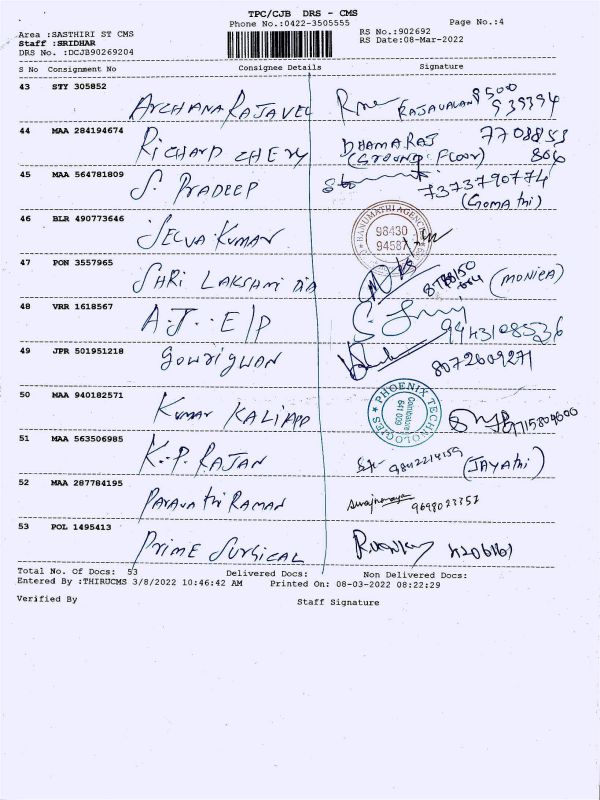 TPC/CJB DRS - CMS
Phone No.:0422-3505555
Page No.:4
Area :SASTHIRI ST CMS
Staff :SRIDHAR
DRS No. :DCJB90269204
RS No.:902692
RS Date:08-Mar-2022
S No Consignment No Consignee Details Signature
43 STY 305852
ARCHANA RAJAVEL
RAJAVALAN 9500
939394
44 MAA 284194674
RICHARD CHERY
DHAMARAJ 7708853
(GROUND FLOOR) 866
45 MAA 564781809
S. PRADEEP
7373790774
(Gomathi)
46 BLR 490773646
SELVA KUMAN
BANUMATHI AGENCY
98430
94587
47 PON 3557965
SHRI LAKSHMI DIA
(MONICA)
48 VRR 1618567
A.J.. E/P
9443108536
49 JPR 501951218
GOWRIGUAN
8072609271
50 MAA 940182571
KUMAR KALIAPP
PHOENIX TECHNOLOGIES
Coimbatore
641 009
9715804600
51 MAA 563506985
K.P. RAJAN
9842214159
(JAYAthi)
52 MAA 287784195
PARAVAthi RAMAN
9698023357
53 POL 1495413
PRIME SURGICAL
4206161
Total No. Of Docs: 53 Delivered Docs: Non Delivered Docs:
Entered By :THIRUCMS 3/8/2022 10:46:42 AM Printed On: 08-03-2022 08:22:29
Verified By Staff Signature